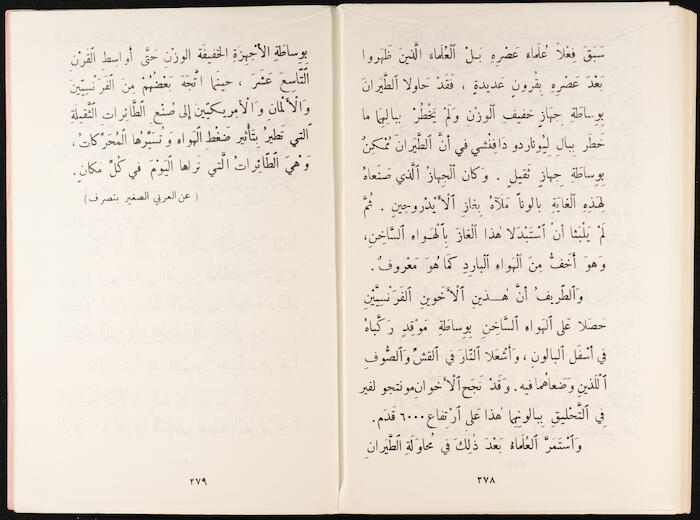 سَبَقَ فِعْلاً عُلَماءَ عَصْرِهِ بَلْ ٱلْعُلَماءَ ٱلَّذينَ ظَهَروا
بَعْدَ عَصْرِهِ بِقُرونٍ عَديدةٍ ، فَقَدْ حاولا ٱلطَّيَرانَ
بِوِساطَةِ جِهازٍ خَفيفِ ٱلْوزْنِ وَلَمْ يَخْطُرْ بِبالِهِما ما
خَطَر بِبالِ لِيُوناردو دَافِنْشي في أنَّ ٱلطَّيَرانَ مُمْكِنٌ
بِوِساطَةِ جِهازٍ ثَقيلٍ . وَكان ٱلْجِهازُ ٱلَّذي صَنَعاهُ
لِهذِهِ ٱلْغايَةِ بالوناً مَلآهُ بِغازِ ٱلْأَيْدروجينِ . ثُمَّ
لَمْ يَلْبَثا أنْ ٱسْتَبْدَلا هٰذا ٱلْغازَ بِٱلْهَواءِ ٱلسَّاخِنِ،
وَهوَ أخَفُّ مِنَ ٱلْهَواءِ ٱلْبارِدِ كمَا هُوَ مَعْروفٌ .
وَٱلطَّريفُ أنَّ هٰذينِ ٱلْأخَوينِ ٱلْفَرَنْسِيَّيْنِ
حَصَلا عَلى ٱلْهَواءِ ٱلسَّاخنِ بِوِساطَةِ مَوْقِدٍ رَكَّباهُ
في أسْفَلِ ٱلْبالونِ ، وَأشْعَلا ٱلنَّارَ في ٱلْقشِّ وَٱلصُّوفِ
ٱللَّذينِ وَضَعاهُما فيه . وَقَدْ نَجَح ٱلْأخَوانِ مونتجو لفير
في ٱلتَّحْليقِ بِبالونِهِما هٰذا عَلى ٱرْتِفاعِ ٦٠٠٠ قَدَمٍ .
وَٱسْتَمرَّ ٱلْعُلَماءُ بَعْدَ ذٰلِكَ في مُحاوَلَةِ ٱلطَّيَرانِ
٢٧٨
بِوِساطَةِ ٱلأجْهِزَةِ ٱلْخَفيفَةِ ٱلْوزْنِ حَتَّى أواسِطِ ٱلْقَرْنِ
ٱلتَّاسِعَ عَشَرَ ، حينَما ٱتَّجَهَ بَعْضُهُمْ مِنَ ٱلْفَرَنْسِيّينَ
وَٱلْألْمانِ وَٱلْأَمريكِيّينَ إلى صُنْعِ ٱلطَّائِراتِ ٱلثَّقيلَةِ
ٱلَّتي تَطيرُ بِتَأثيرِ ضَغْطِ ٱلْهَواءِ وَتُسَيِّرُها ٱلْمُحَرِّكاتُ ،
وَهْيَ ٱلطَّائِراتُ ٱلَّتي نَراها ٱلْيَوْمَ في كُلِّ مَكانٍ .
( عن العربي الصغير بتصرف )
٢٧٩